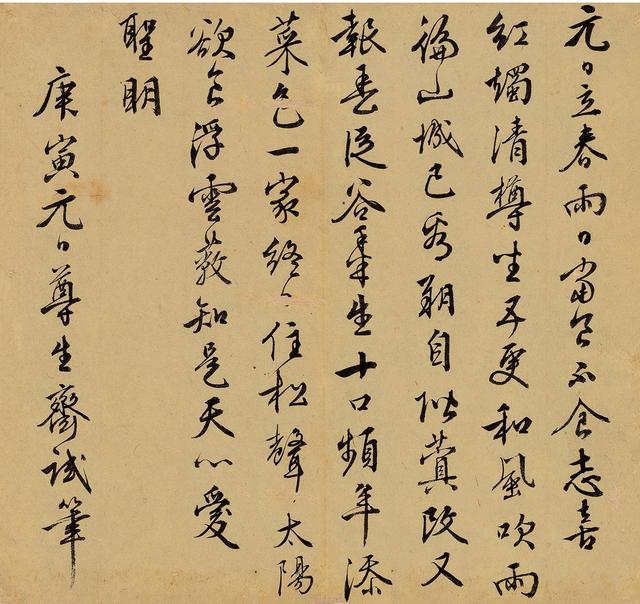 元日立春雨日當食不食志喜
紅燭清樽坐五更和風吹雨
徧山城已看朔自階蓂改又
報春從谷生十口頻年添
菜色一家終日住松聲太陽
欲食浮雲蔽知是天心愛
聖明
庚寅元日尊生齋試筆